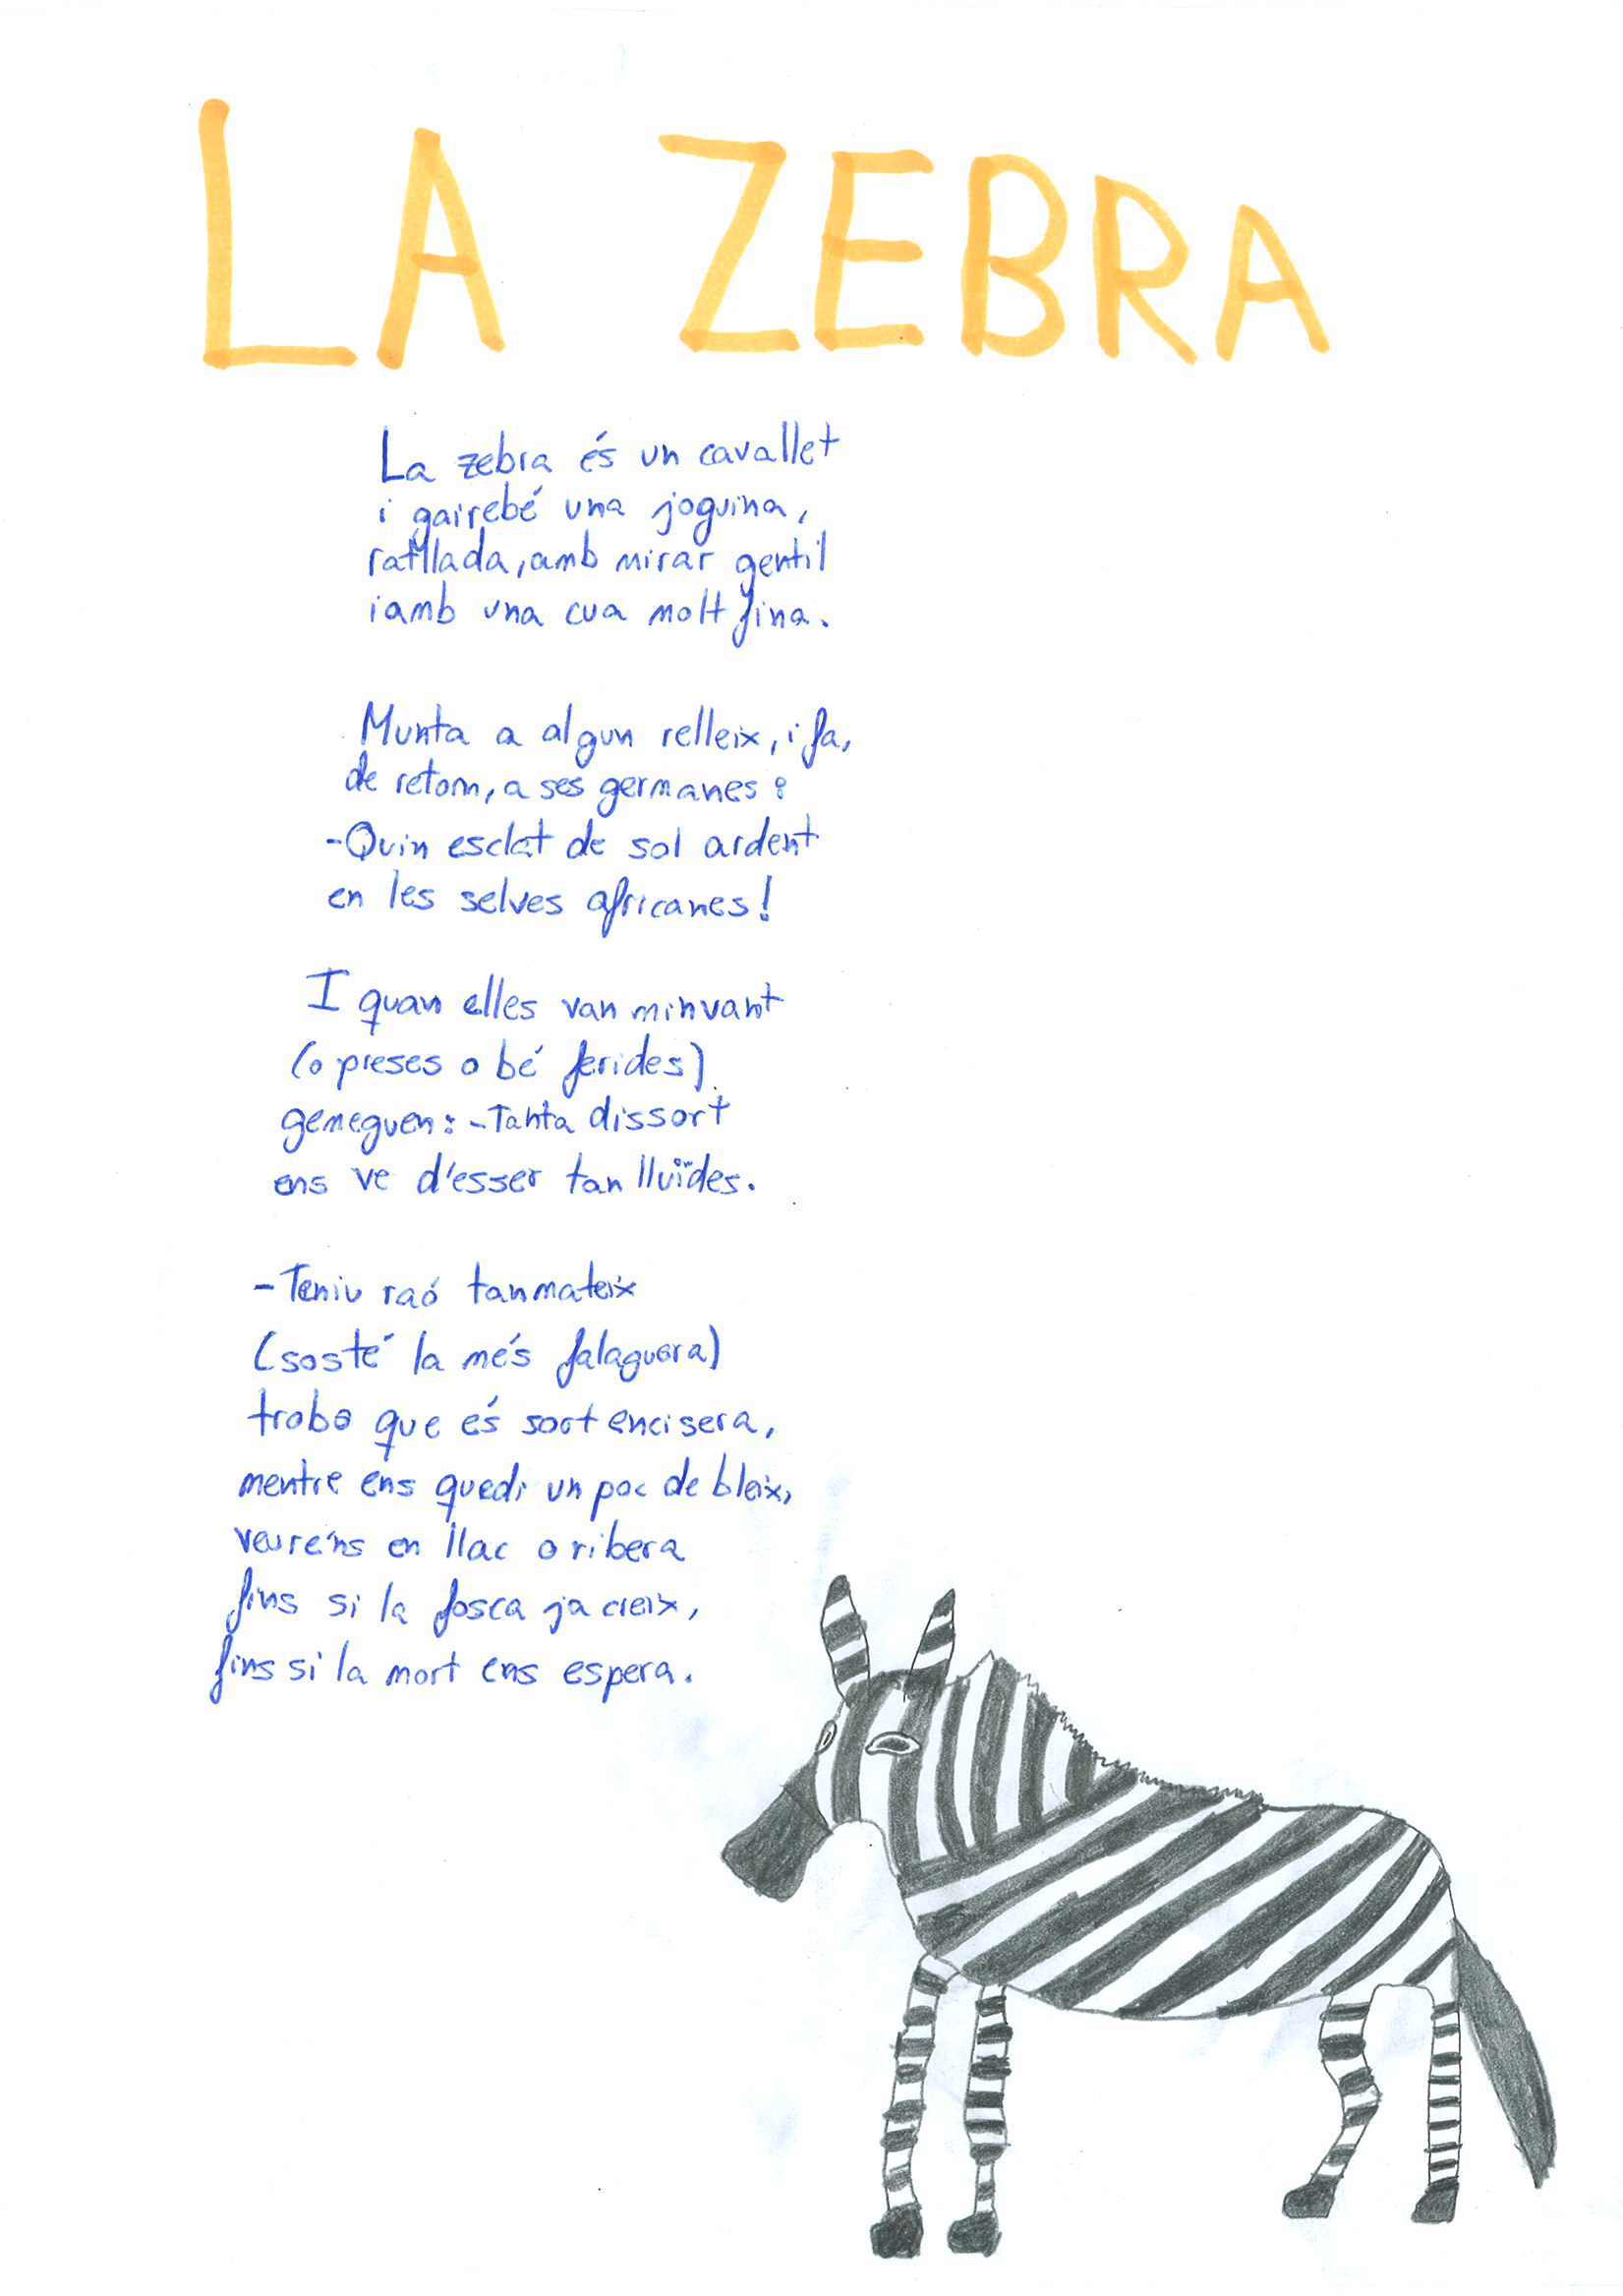 LA ZEBRA
La zebra és un cavallet
i gairebé una joguina,
ratllada, amb mirar gentil
i amb una cua molt fina.
Munta a algun relleix, i fa,
de retorn, a ses germanes:
-Quin esclat de sol ardent
en les selves africanes!
I quan elles van minvant
(o preses o bé ferides)
gemeguen: -Tanta dissort
ens ve d'esser tan lluïdes.
-Teniu raó tanmateix
(sosté la més falaguera)
trobo que és sort encisera,
mentre ens quedi un poc de bleix,
veure'ns en llac o ribera
fins si la fosca ja creix,
fins si la mort ens espera.